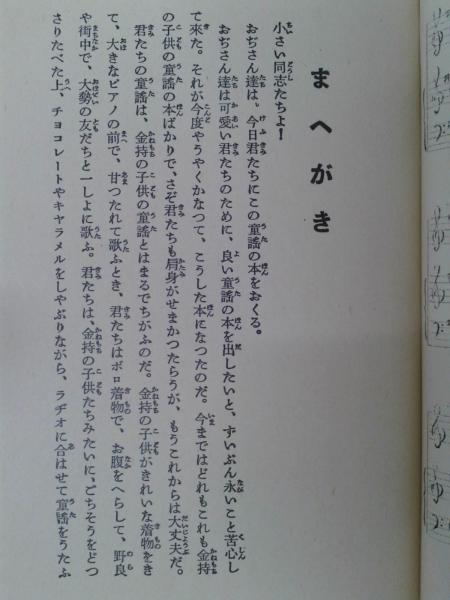 まへがき
小さい同志たちよ！
おぢさん達は、今日君たちにこの童謡の本をおくる。
おぢさん達は可愛い君たちのために、良い童謡の本を出したいと、ずいぶん永いこと苦心し
て來た。それが今度やうやくかなつて、こうした本になつたのだ。今まではどれもこれも金持
の子供の童謡の本ばかりで、さぞ君たちも肩身がせまかつたらうが、もうこれからは大丈夫だ。
君たちの童謡は、金持の子供の童謡とはまるでちがふのだ。金持の子供がきれいな着物をき
て、大きなピアノの前で、甘つたれて歌ふとき、君たちはボロ着物で、お腹をへらして、野良
や街中で、大勢の友だちと一しよに歌ふ。君たちは、金持の子供たちみたいに、ごちそうをどつ
さりたべた上、チョコレートやキャラメルをしやぶりながら、ラヂオに合はせて童謡をうたふ